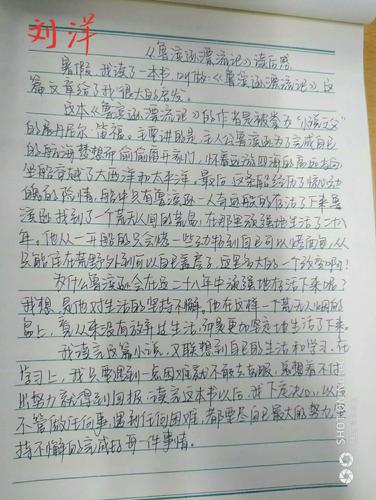 刘洋
《鲁滨逊漂流记》读后感
暑假,我读了一本书,叫做《鲁滨逊漂流记》,这
篇文章给了我很大的启发。
这本《鲁滨逊漂流记》的作者是被拳为"小说之父"
的丹尼尔·笛福。主要讲的是主人公鲁滨逊为了完成自己
的航海梦想而偷偷离开家门,怀着远游四海的高远志向,
坐船穿越了大西洋和太平洋。最后,这条船经历了惊心动
魄的险情,船中只有鲁滨逊一人奇迹般的存活了下来鲁
滨逊找到了一个荒无人烟的荒岛,在那里顽强地生活了二十八
年。他从一开始的只会烧一些动物到自己可以烤面包,从
只能住在荒野外到可以自己盖房子,这是多大的一个改变啊!
为什么鲁滨逊会在这二十八年中顽强地存活下来呢?
我想,是他对生活的坚持不懈。他在这样一个荒无人烟的
岛上,看从来没有放弃过生活,而是更加坚定地生活了下来。
我读完这篇小说,又联想到自己的生活和学习,在
学习上,我只要遇到一点困难就不敢去克服,总想着不付
出努力就得到回报。读完这本书以后,我下定决心,以后
不管做任何事,遇到任何困难,都要尽自己最大的努力,坚
持不懈的完成好每一件事情。
SHOT ON